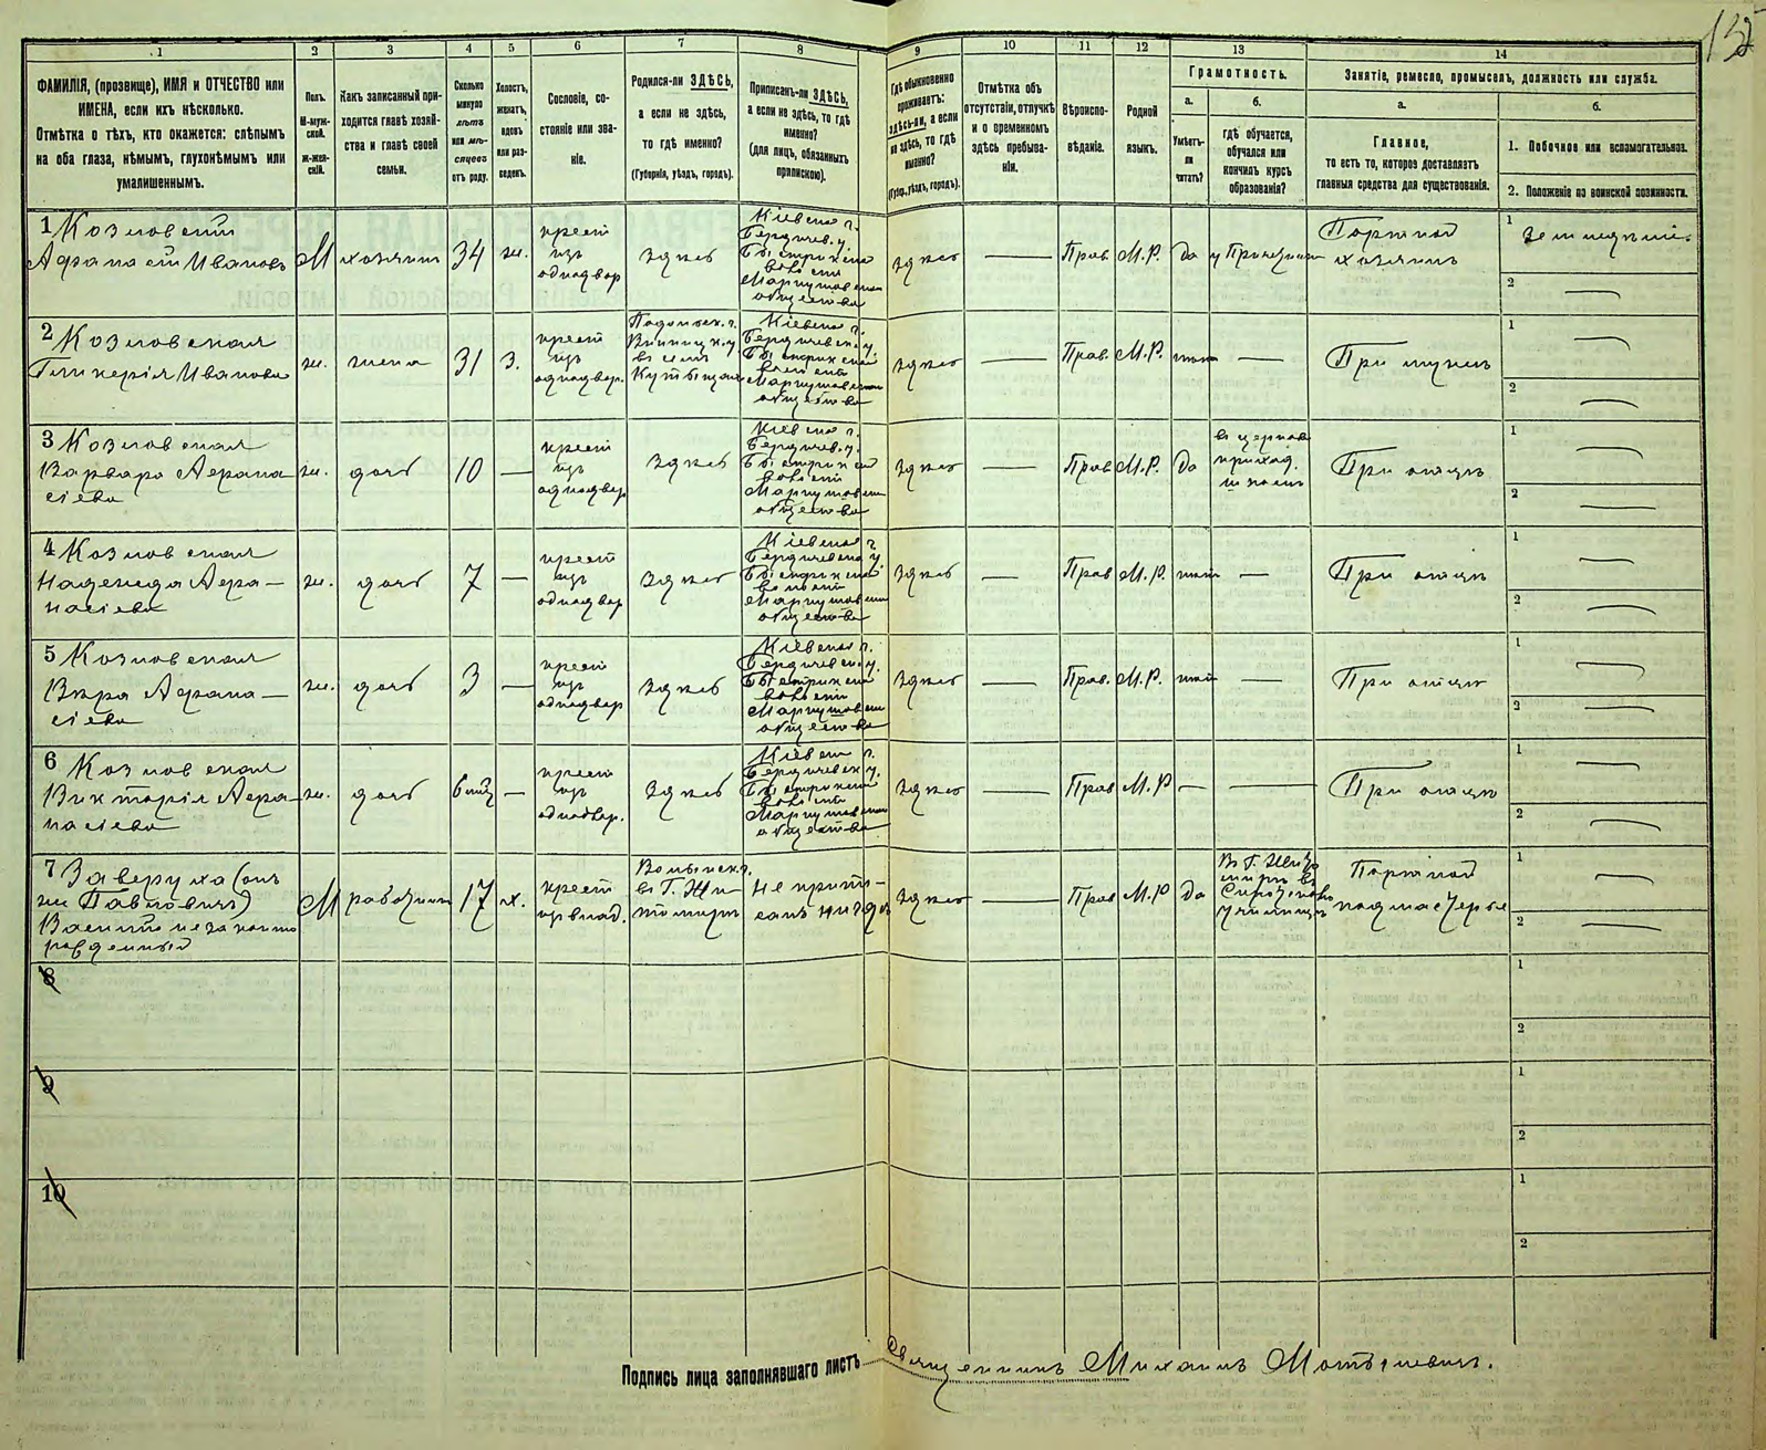 135
1 2 3 4 5 6 7 8 9 10 11 12 13 14
ФАМИЛІЯ, (прозвище), ИМЯ и ОТЧЕСТВО или
ИМЕНА, если ихъ нѣсколько.
Отмѣтка о тѣхъ, кто окажется: слѣпымъ
на оба глаза, нѣмымъ, глухонѣмымъ или
умалишеннымъ.
Полъ.
М-муж-
ской.
Ж-жен-
скій.
Какъ записанный при-
ходится главѣ хозяй-
ства и главѣ своей
семьи.
Сколько
минуло
лѣтъ
или мѣ-
сяцевъ
отъ роду.
Холостъ,
женатъ,
вдовъ
или раз-
веденъ.
Сословіе, со-
стояніе или зва-
ніе.
Родился-ли ЗДѢСЬ,
а если не здѣсь,
то гдѣ именно?
(Губернія, уѣздъ, городъ).
Приписанъ-ли ЗДѢСЬ,
а если не здѣсь, то гдѣ
именно?
(для лицъ, обязанныхъ
припискою).
Гдѣ обыкновенно
проживаетъ:
здѣсь-ли, а если
не здѣсь, то гдѣ
именно?
(Губер., уѣздъ, городъ).
Отмѣтка объ
отсутствіи, отлучкѣ
и о временномъ
здѣсь пребыва-
ніи.
Вѣроиспо-
вѣданіе.
Родной
языкъ.
Грамотность.
а.
Умѣетъ-
ли
читать?
б.
гдѣ обучается,
обучался или
кончилъ курсъ
образованія?
Занятіе, ремесло, промыселъ, должность или служба.
а.
Главное,
то есть то, которое доставляетъ
главныя средства для существованія.
б.
1. Побочное или вспомогательное.
2. Положеніе по воинской повинности.
1 Козловскій
Афанасій Ивановъ
М
хозяинъ
34
ж.
крест
изъ
однодвор
здѣсь
Кіевской г.
Бердичев. у.
волости
общества
здѣсь
Прав
М.Р.
да
Портной
хозяинъ
1
2
2 Козловская
Гликерія Иванова
ж.
жена
31
З.
крест
изъ
однодвор.
Подольск. г.
Винницк. у.
въ селѣ
Кіевской г.
Бердичевск. у.
волости
общества
здѣсь
Прав.
М.Р.
При мужѣ
1
2
3 Козловская
Варвара Афана
сіева
ж.
дочь
10
крест
изъ
однодвор
здѣсь
Кіевской г.
Бердичев. у.
волости
общества
здѣсь
Прав
М.Р.
да
въ церков
приход.
школѣ
При отцѣ
1
2
4 Козловская
Надежда Афа-
насіева
ж.
дочь
7
крест
изъ
однодвор
здѣсь
Кіевской г.
Бердичевск. у.
волости
общества
здѣсь
Прав
М.Р.
При отцѣ
1
2
5 Козловская
Вѣра Афана-
сіева
ж.
дочь
3
крест
изъ
однодвор
здѣсь
Кіевской г.
Бердичевск. у.
волости
общества
здѣсь
Прав.
М.Р.
При отцѣ
1
2
6 Козловская
Викторія Афа-
насіева
ж.
дочь
крест
изъ
однодвор.
здѣсь
Кіевск г.
Бердичевск. у.
волости
общества
здѣсь
Прав
М.Р
При отцѣ
1
2
7 Заверуха (онъ
же Павловичъ)
Василій незаконно
рожденный
М
рабочій
17
х.
крест
Волынск. г.
въ Г. Жи-
томирѣ
Не припи-
санъ нигдѣ
здѣсь
Прав
М.Р
да
Въ Г. Жито
мирѣ въ
училищѣ
Портной
подмастерье
1
2
8
1
2
9
1
2
10
1
2
Подпись лица заполнявшаго листъ Священникъ Михаилъ